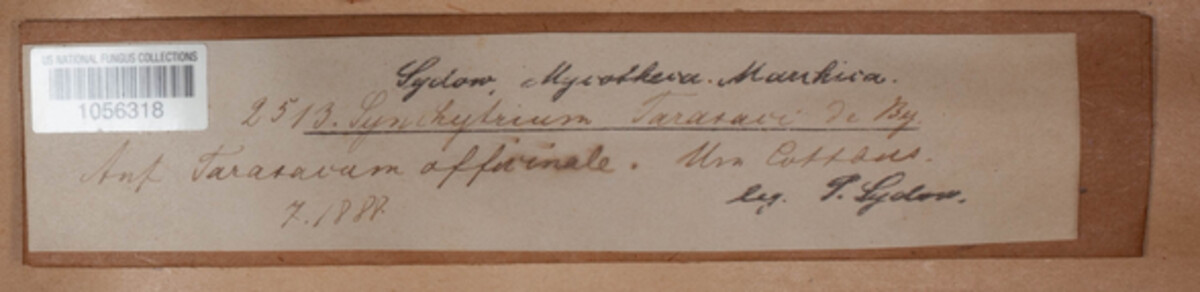 US NATIONAL FUNGUS COLLECTIONS
1056318
Sydow, Mycotheca. Marchica.
2513. Synchytrium Taraxaci de By.
Auf Taraxacum officinale. Um Cottbus.
7. 1888.
leg. P. Sydow.